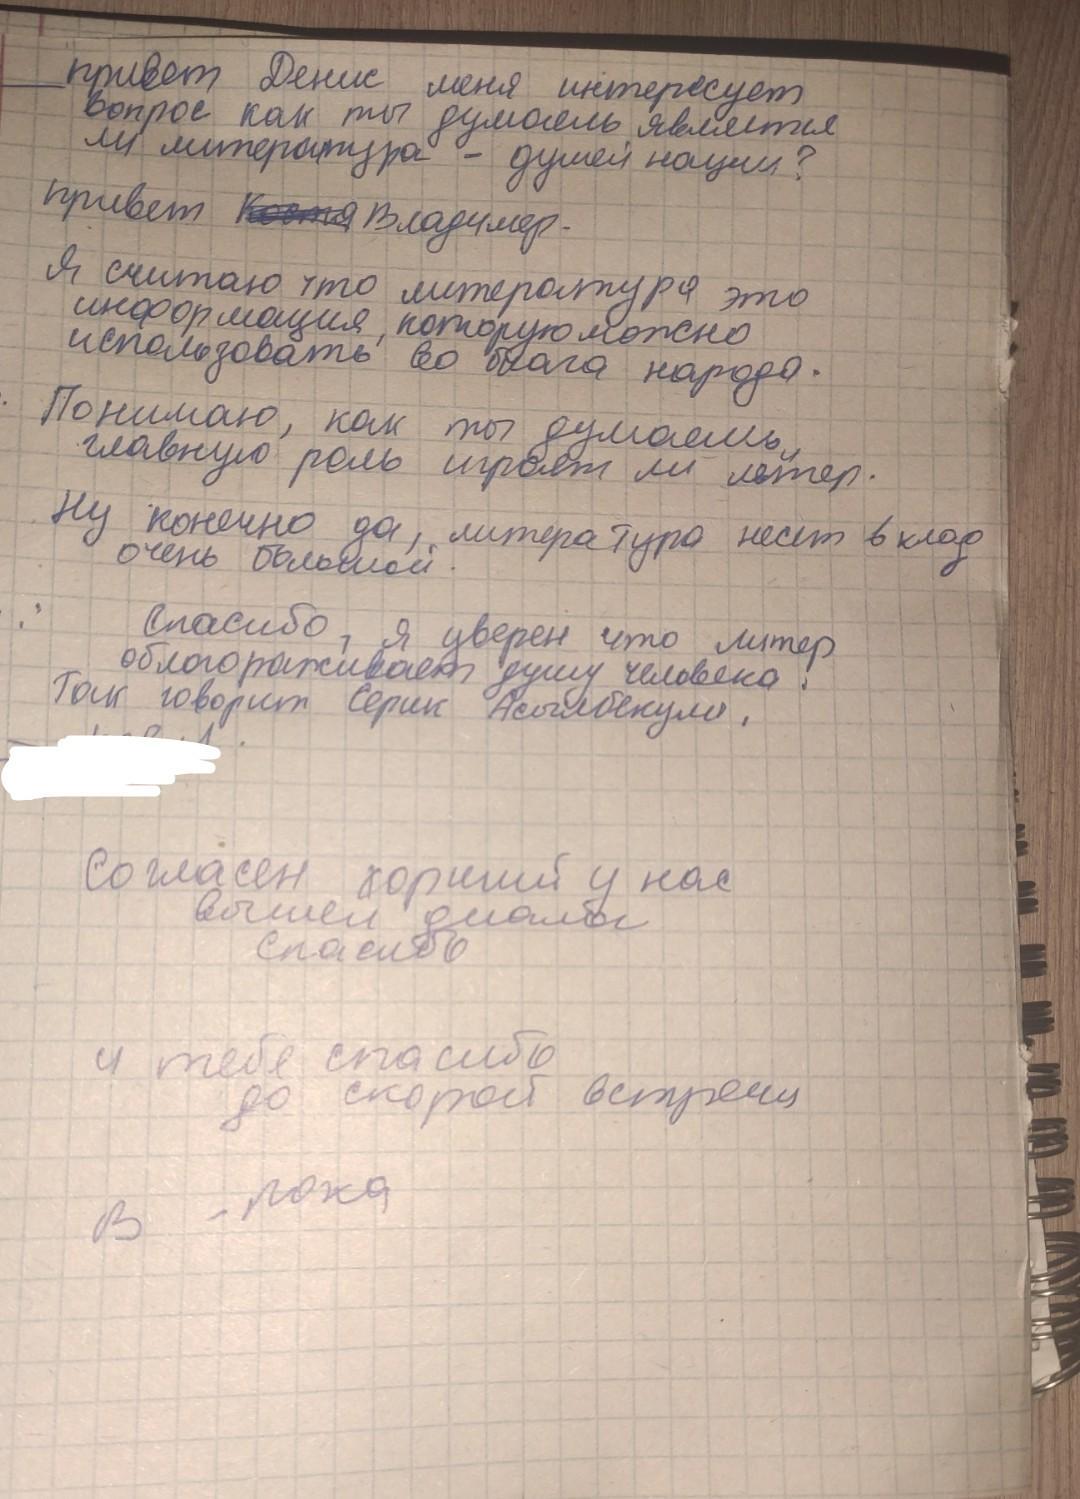 привет Денис меня интересует
вопрос как ты думаешь является
ли литература - душей нации?
привет Владимер.
Я считаю что литература это
информация, которую можно
использовать во блага народа.
Понимаю, как ты думаешь,
главную роль играят ли литер.
Ну конечно да, литература несет вклад
очень большой.
Спасибо, я уверен что литер
облогораживает душу человека.
Так говорит Серик Асылбекулы.
Согласен хороший у нас
вышел диалог
Спасибо
и тебе спасибо
до скорой встречи
В - пока